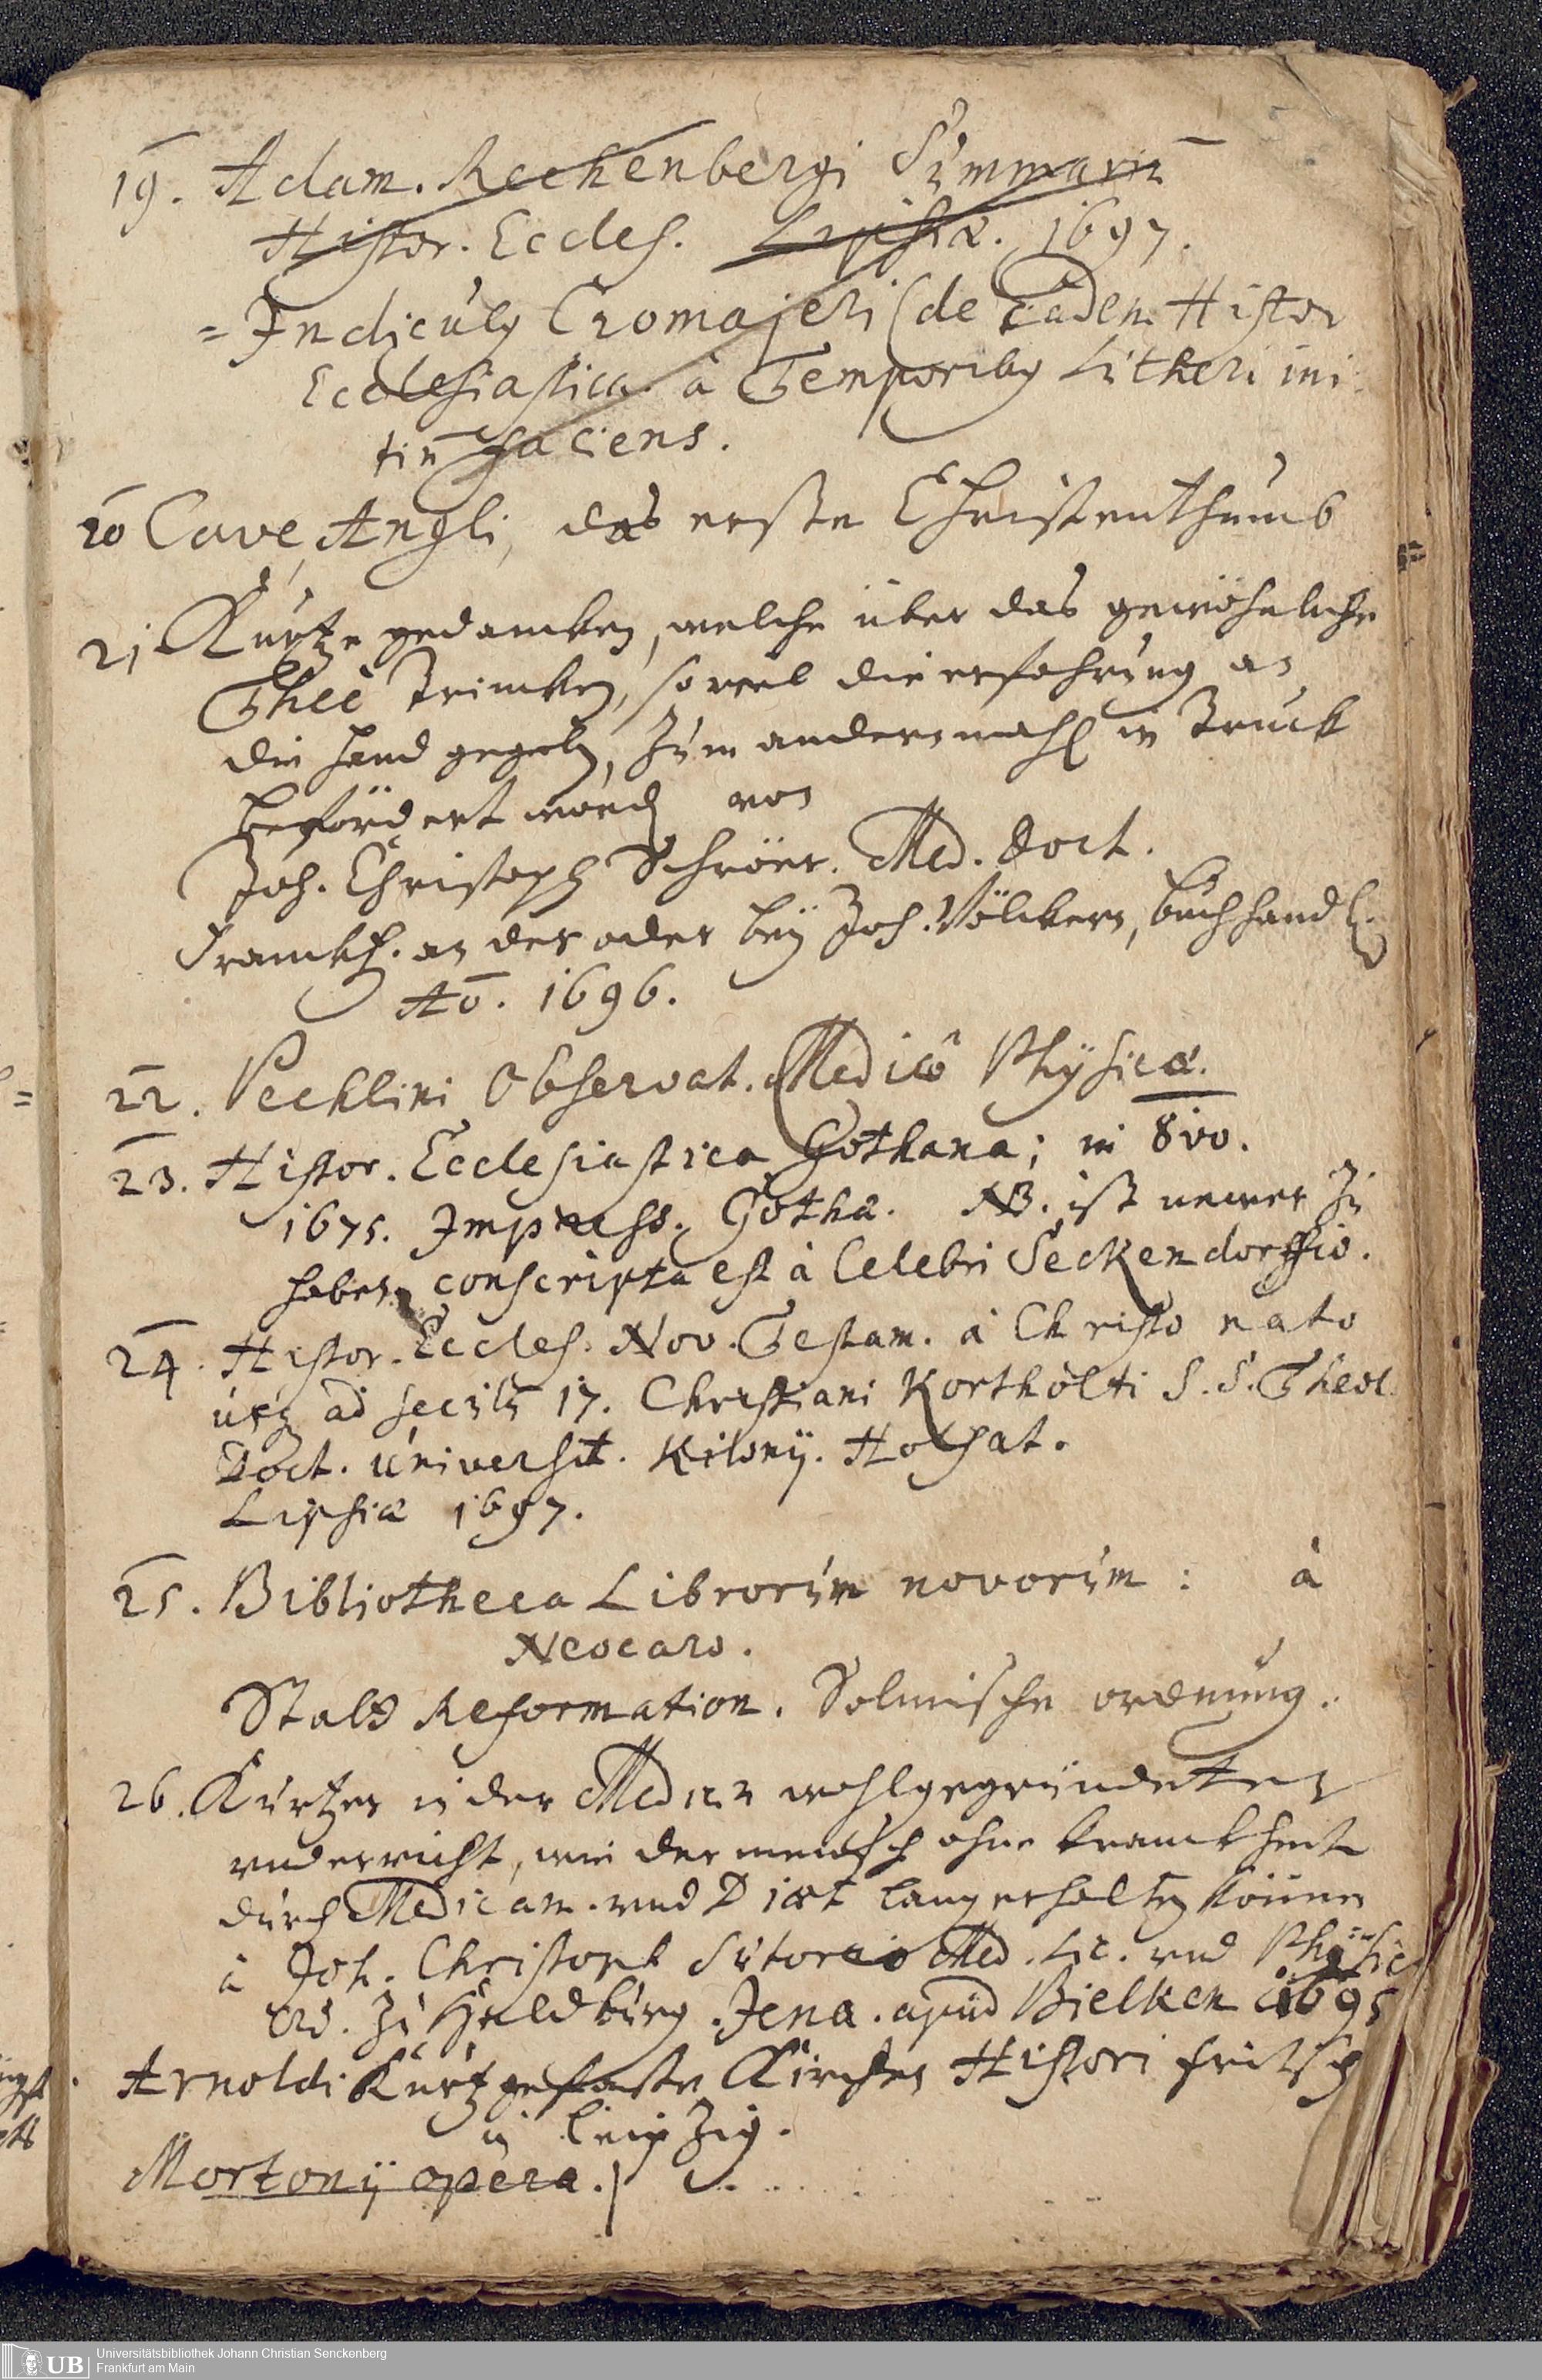 19. Adam. Rechenbergi Summariū
Histor. Eccles. Lipsiæ. 1697.
= Indiculg Cromajeri (de eadem Histor
Ecclesiastica à Temporibg Lutheri ini
tiū faciens.
20 Cave, Angli, das erste Christenthumb
21. Kurtze gedancken, welche über das gewöhnliche
Theè Trincken, so viel die erfahrung an
die hand gegeben, zum andern mahl in Truck
befördert worden von
Joh. Christoph Schröer. Med. Doct.
Franckf. an der oder beÿ Joh. Völckern, buchhandl.
Ao. 1696.
22. Pechlini Observat. Medicô Physicæ.
23. Histor. Ecclesiastica Gothana; in 8vo.
1675. Impress. Gothæ. NB. ist nemer zu
haben, conscripta est à Celebri Seckendorffio.
24. Histor. Eccles. Nov. Testam. à Christo nato
usq ad seculū 17. Christiani Kortholti S. S. Theol.
Doct. Universit. Kilonÿ. Holsat.
Lipsiæ 1697.
25. Bibliotheca Librorum novorum : à
Neocaro.
Reformation. Solmische ordnung.
26. Kurtzer in der Medicin wohlgegründeter
underricht, wie der mensch ohne kranckheit
durch Medicam. und Diæt lang erhalten könne
à Joh. Christoph Sutorio Med. Lic. und Physic.
Ord. zu Heldburg. Jena. apud Bielken 1695
Arnoldi Kurtzgefaste Kirchen Histori fritsch
in Leipzig.
Mortonÿ opera.
Universitätsbibliothek Johann Christian Senckenberg
Frankfurt am Main
UB